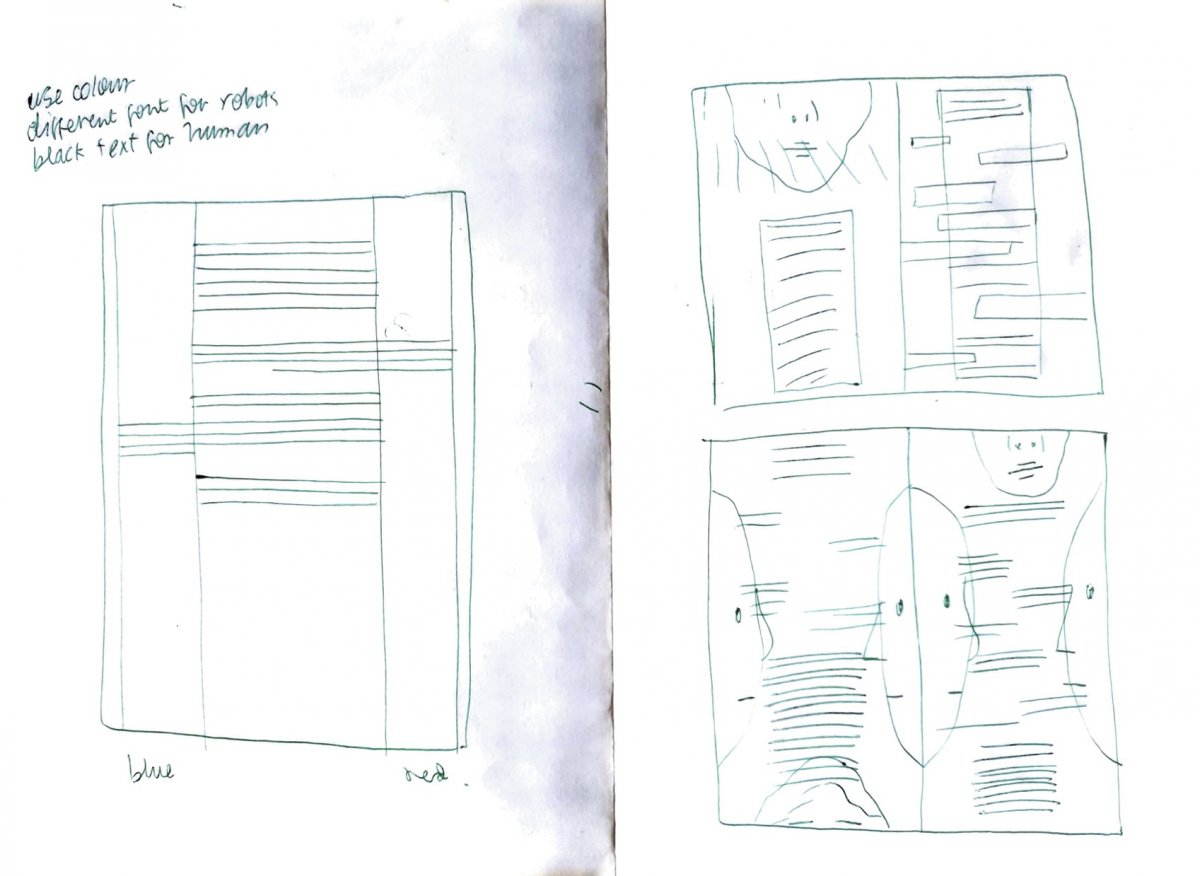 use colour
different font for robots
black text for human
blue
red